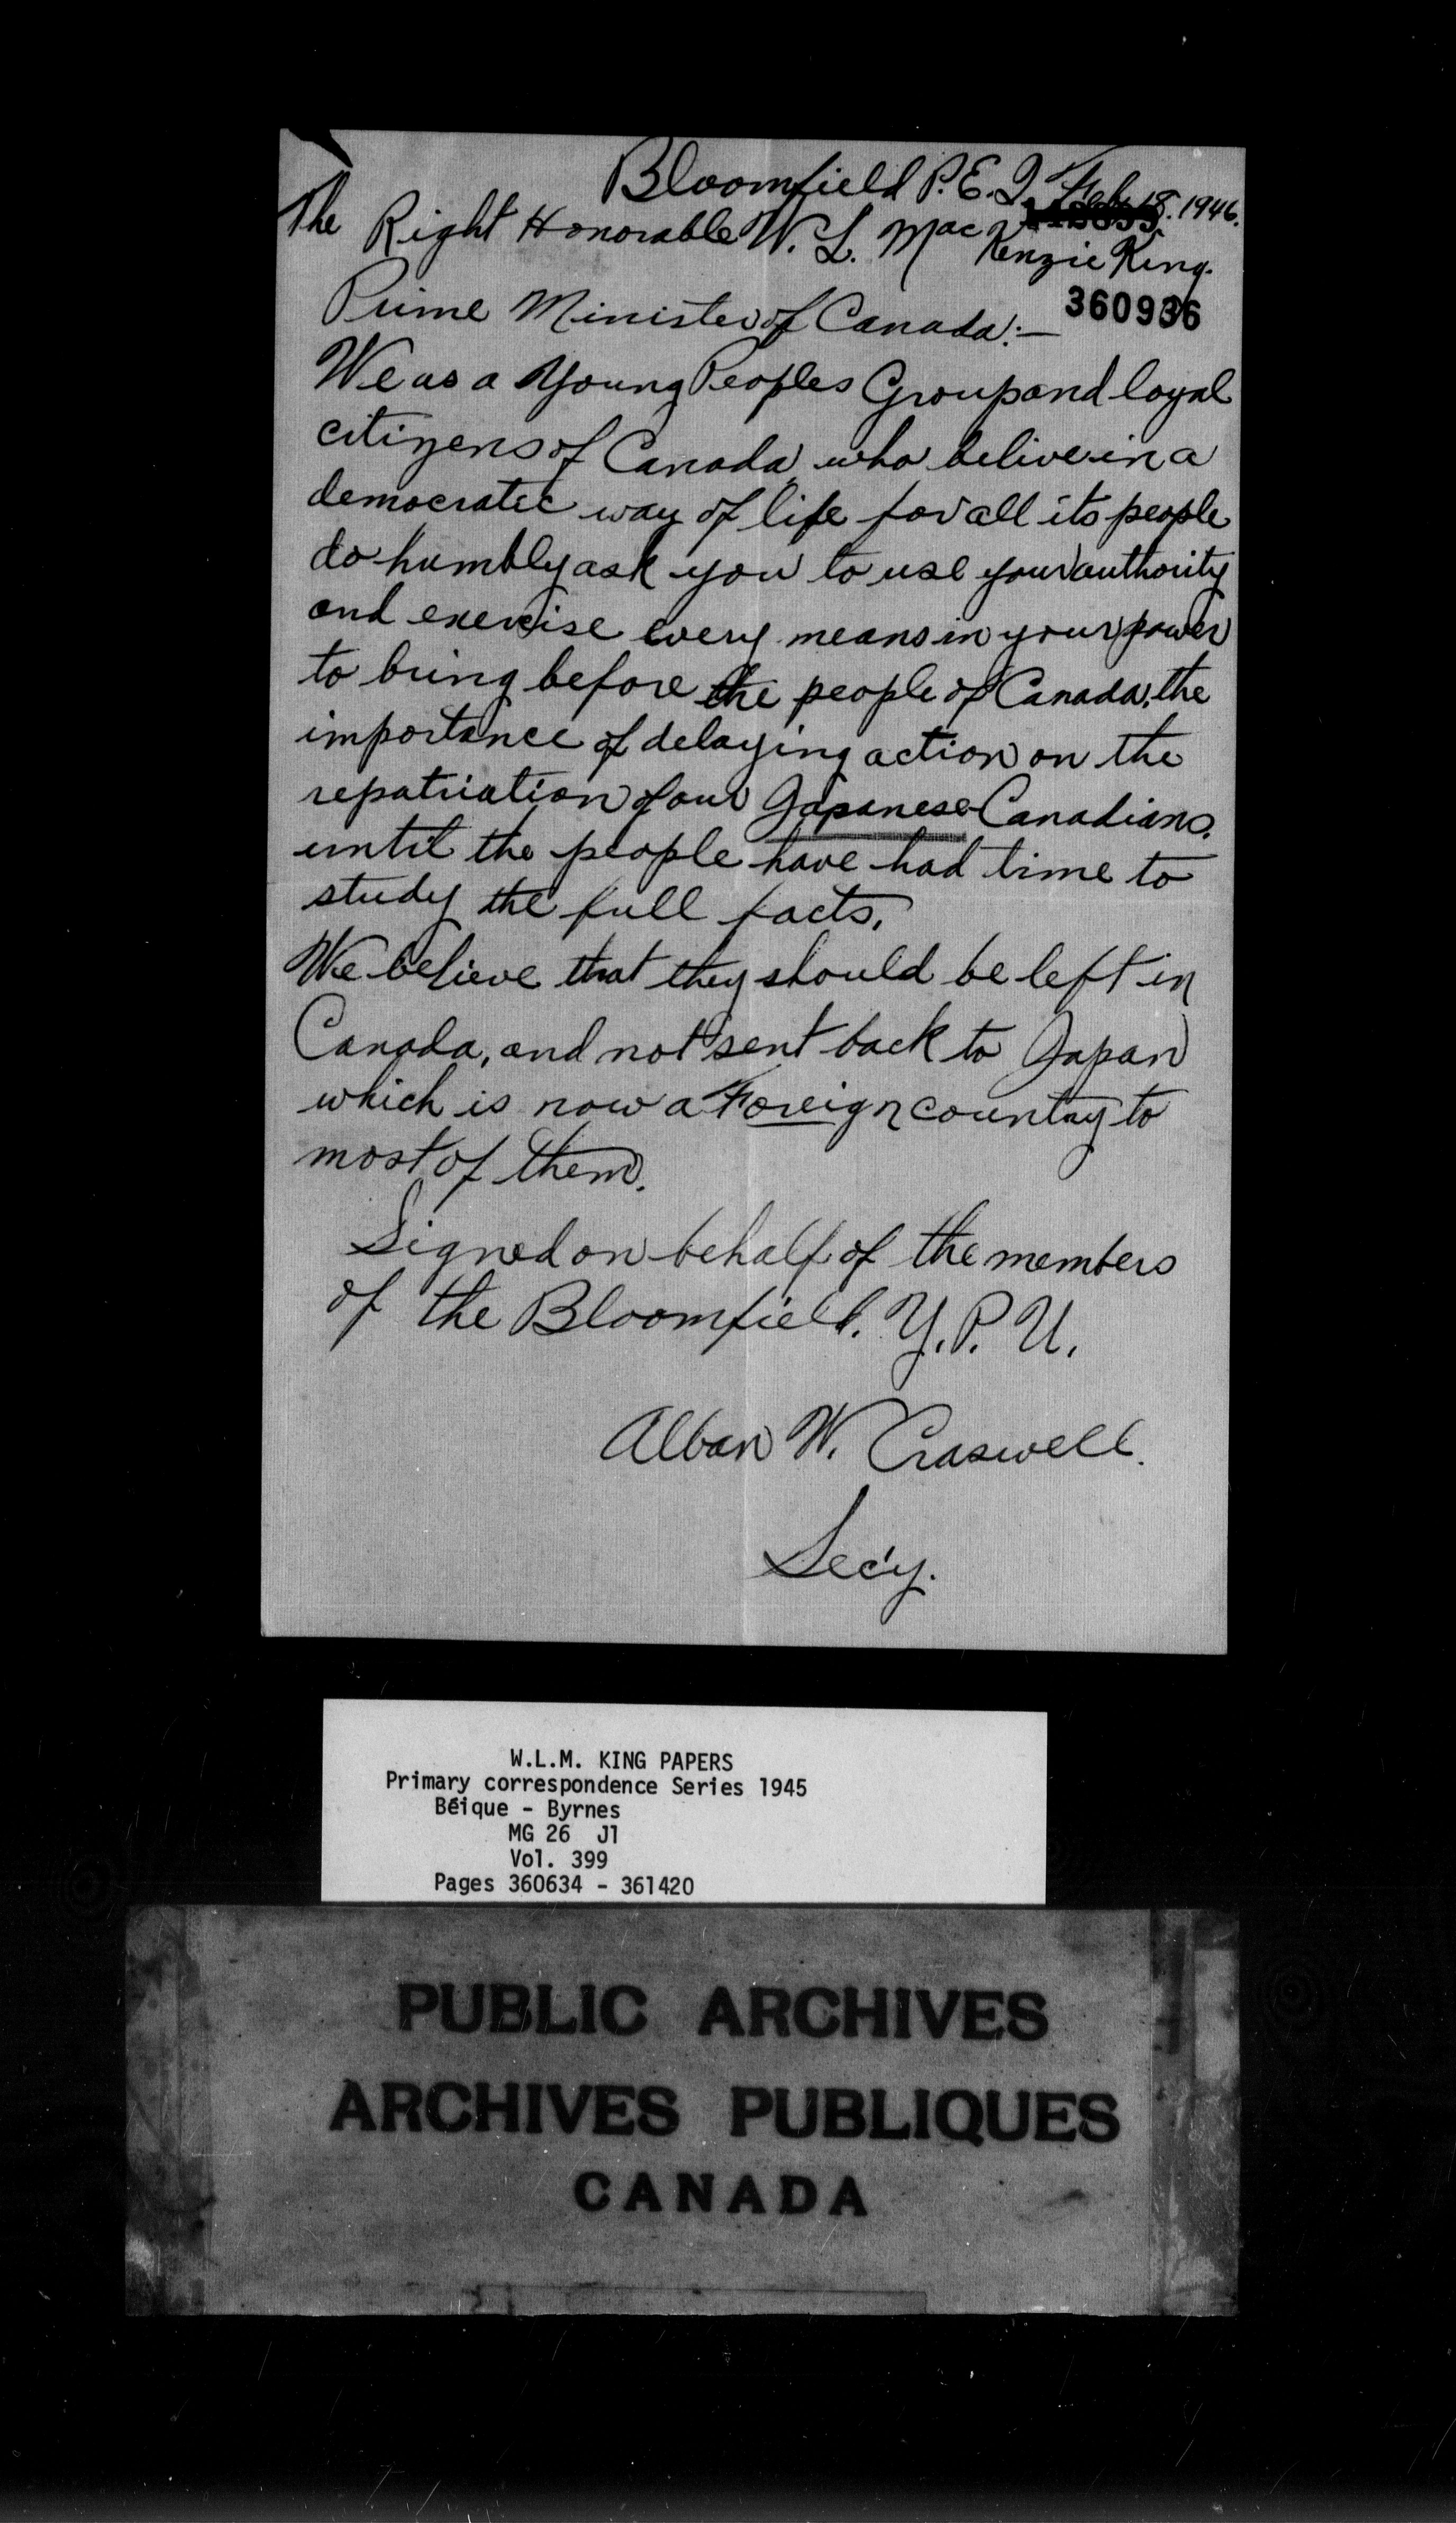 Bloomfield P.E.I. Feb. 18. 1946.
The Right Honorable W. L. Mac Kenzie King.
Prime Minister of Canada:—
360936
We as a Young Peoples Group and loyal
citizens of Canada who belive in a
democratic way of life for all its people
do humbly ask you to use your authority
and exercise every means in your power
to bring before the people of Canada, the
importance of delaying action on the
repatriation of our Japanese-Canadians.
until the people have had time to
study the full facts.
We believe that they should be left in
Canada, and not sent back to Japan
which is now a Foreign country to
most of them.
Signed on behalf of the members
of the Bloomfield. Y.P.U.
Alban W. Craswell.
Sec'y.
W.L.M. KING PAPERS
Primary correspondence Series 1945
Béique - Byrnes
MG 26 J1
Vol. 399
Pages 360634 - 361420
PUBLIC ARCHIVES
ARCHIVES PUBLIQUES
CANADA